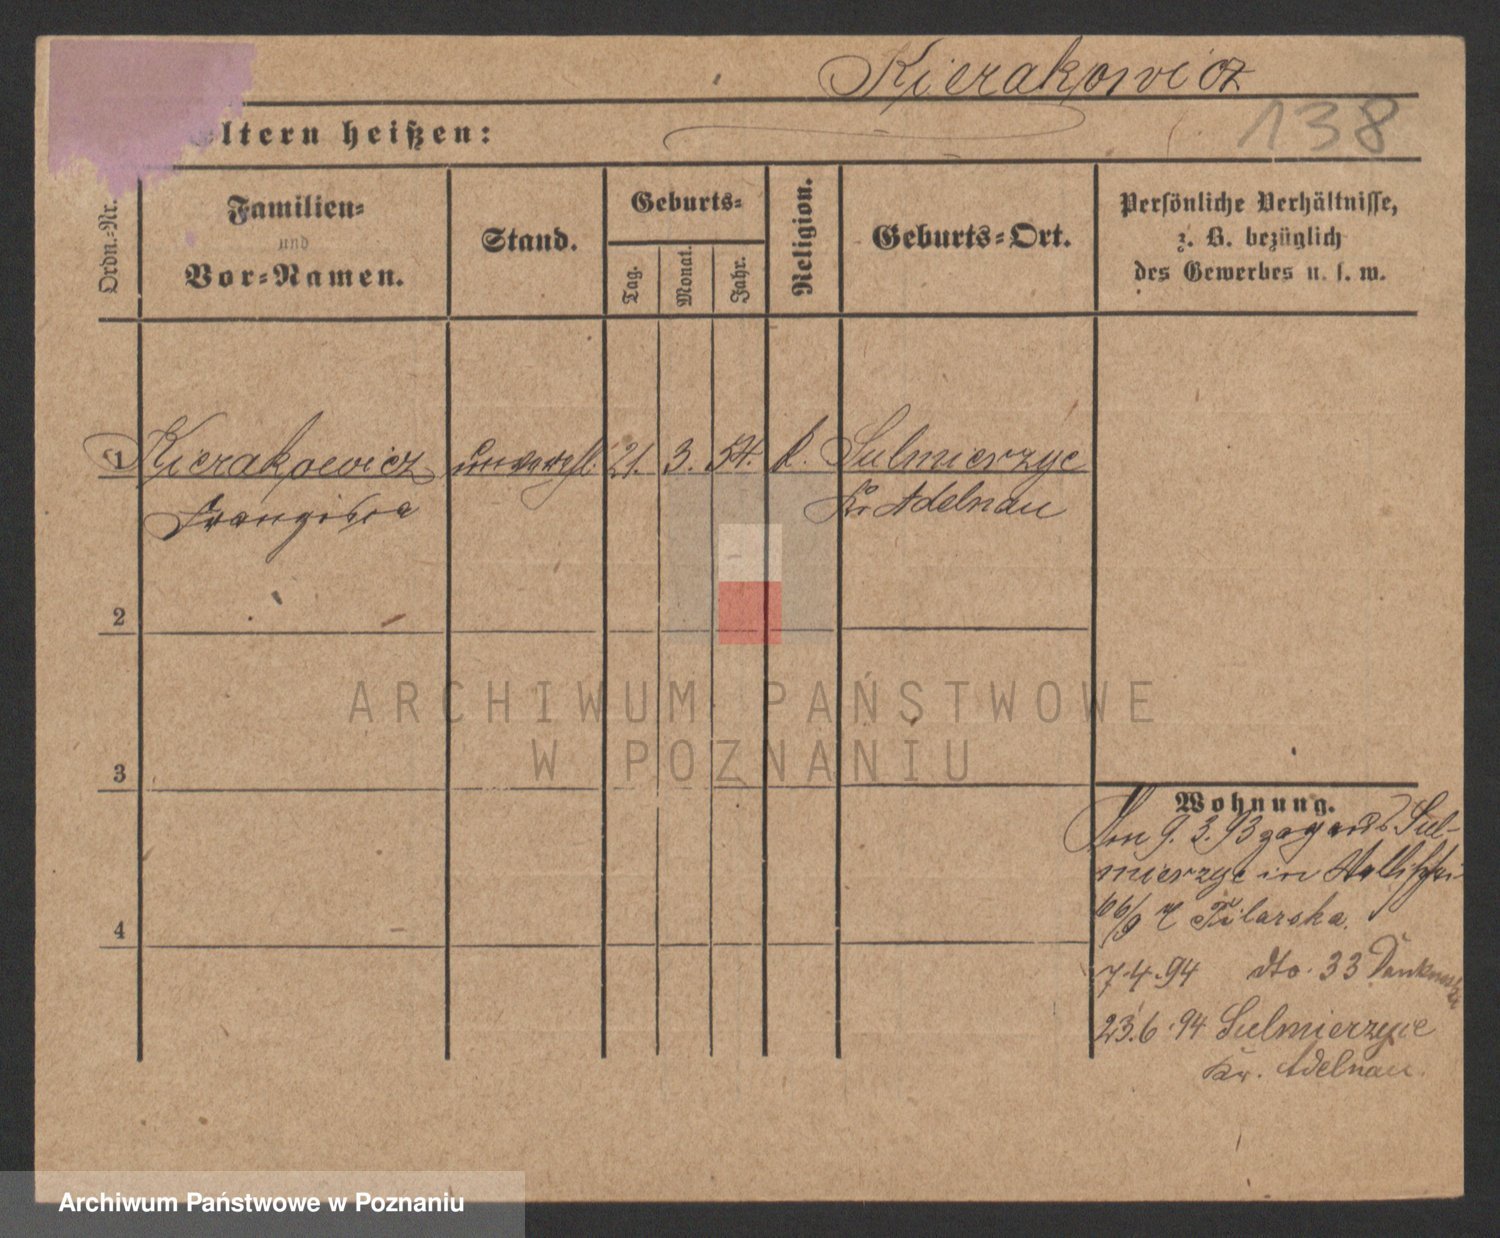 Kierakowicz
138
Eltern heißen:
Ordn.-Nr.
Familien-
und
Vor-Namen.
Stand.
Geburts-
Tag.
Monat.
Jahr.
Religion.
Geburts-Ort.
Persönliche Verhältnisse,
z. B. bezüglich
des Gewerbes u. s. w.
1 Kierakowicz unverehl. 21. 3. 54. k. Sulmierzyc
Franziska Kr Adelnau
2
3
4
Wohnung.
Am 9. 3. 93 zog aus Sul-
mierzyc in
66/9 Filarska.
7.4.94 dto. 33
23.6.94 Sulmierzyce
Kr. Adelnau.
ARCHIWUM PAŃSTWOWE
W POZNANIU
Archiwum Państwowe w Poznaniu